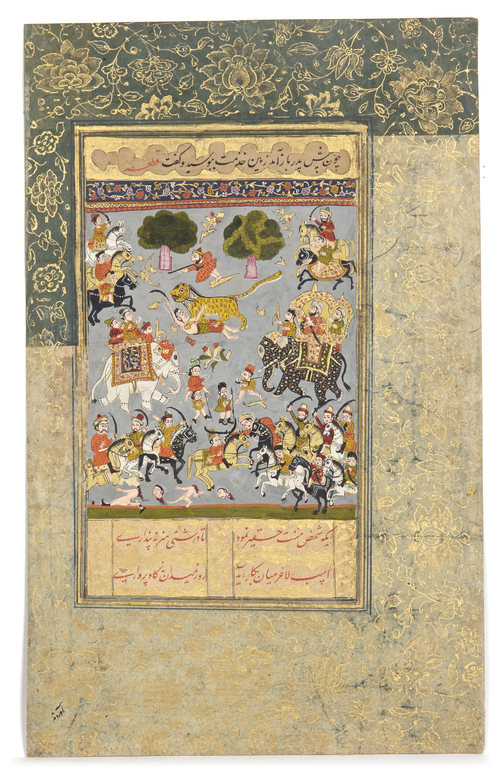 چون پیش پدر باز آمد زمین خدمت ببوسید و گفت قطعه
ایکه شخص منت حقیر نمود تا درشتی هنر نپنداری
اسپ لاغر میان بکار آید روز میدان نه گاو پرواری